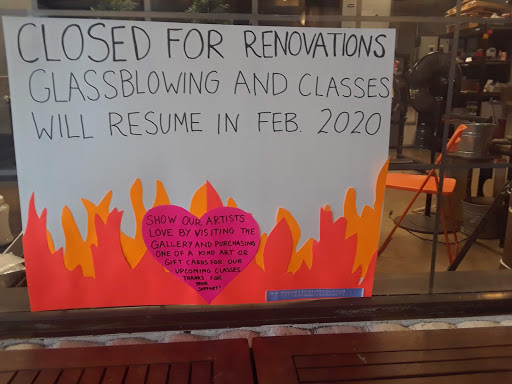 CLOSED FOR RENOVATIONS
GLASSBLOWING AND CLASSES
WILL RESUME IN FEB. 2020
SHOW OUR ARTISTS
LOVE BY VISITING THE
GALLERY AND PURCHASING
ONE OF A KIND ART OR
GIFT CARDS FOR OUR
UPCOMING CLASSES
THANKS FOR
YOUR
SUPPORT!